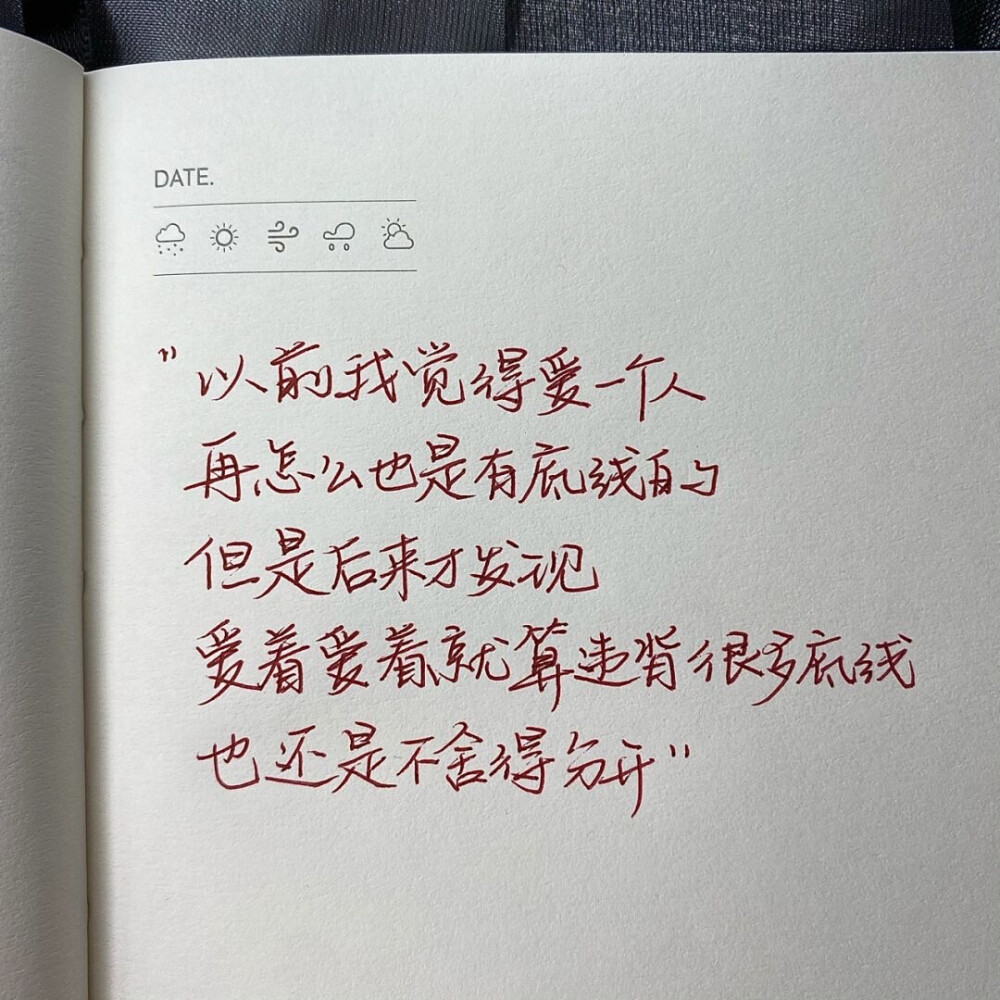 DATE.
"以前我觉得爱一个人
再怎么也是有底线的
但是后来才发现
爱着爱着就算违背很多底线
也还是不舍得分开"